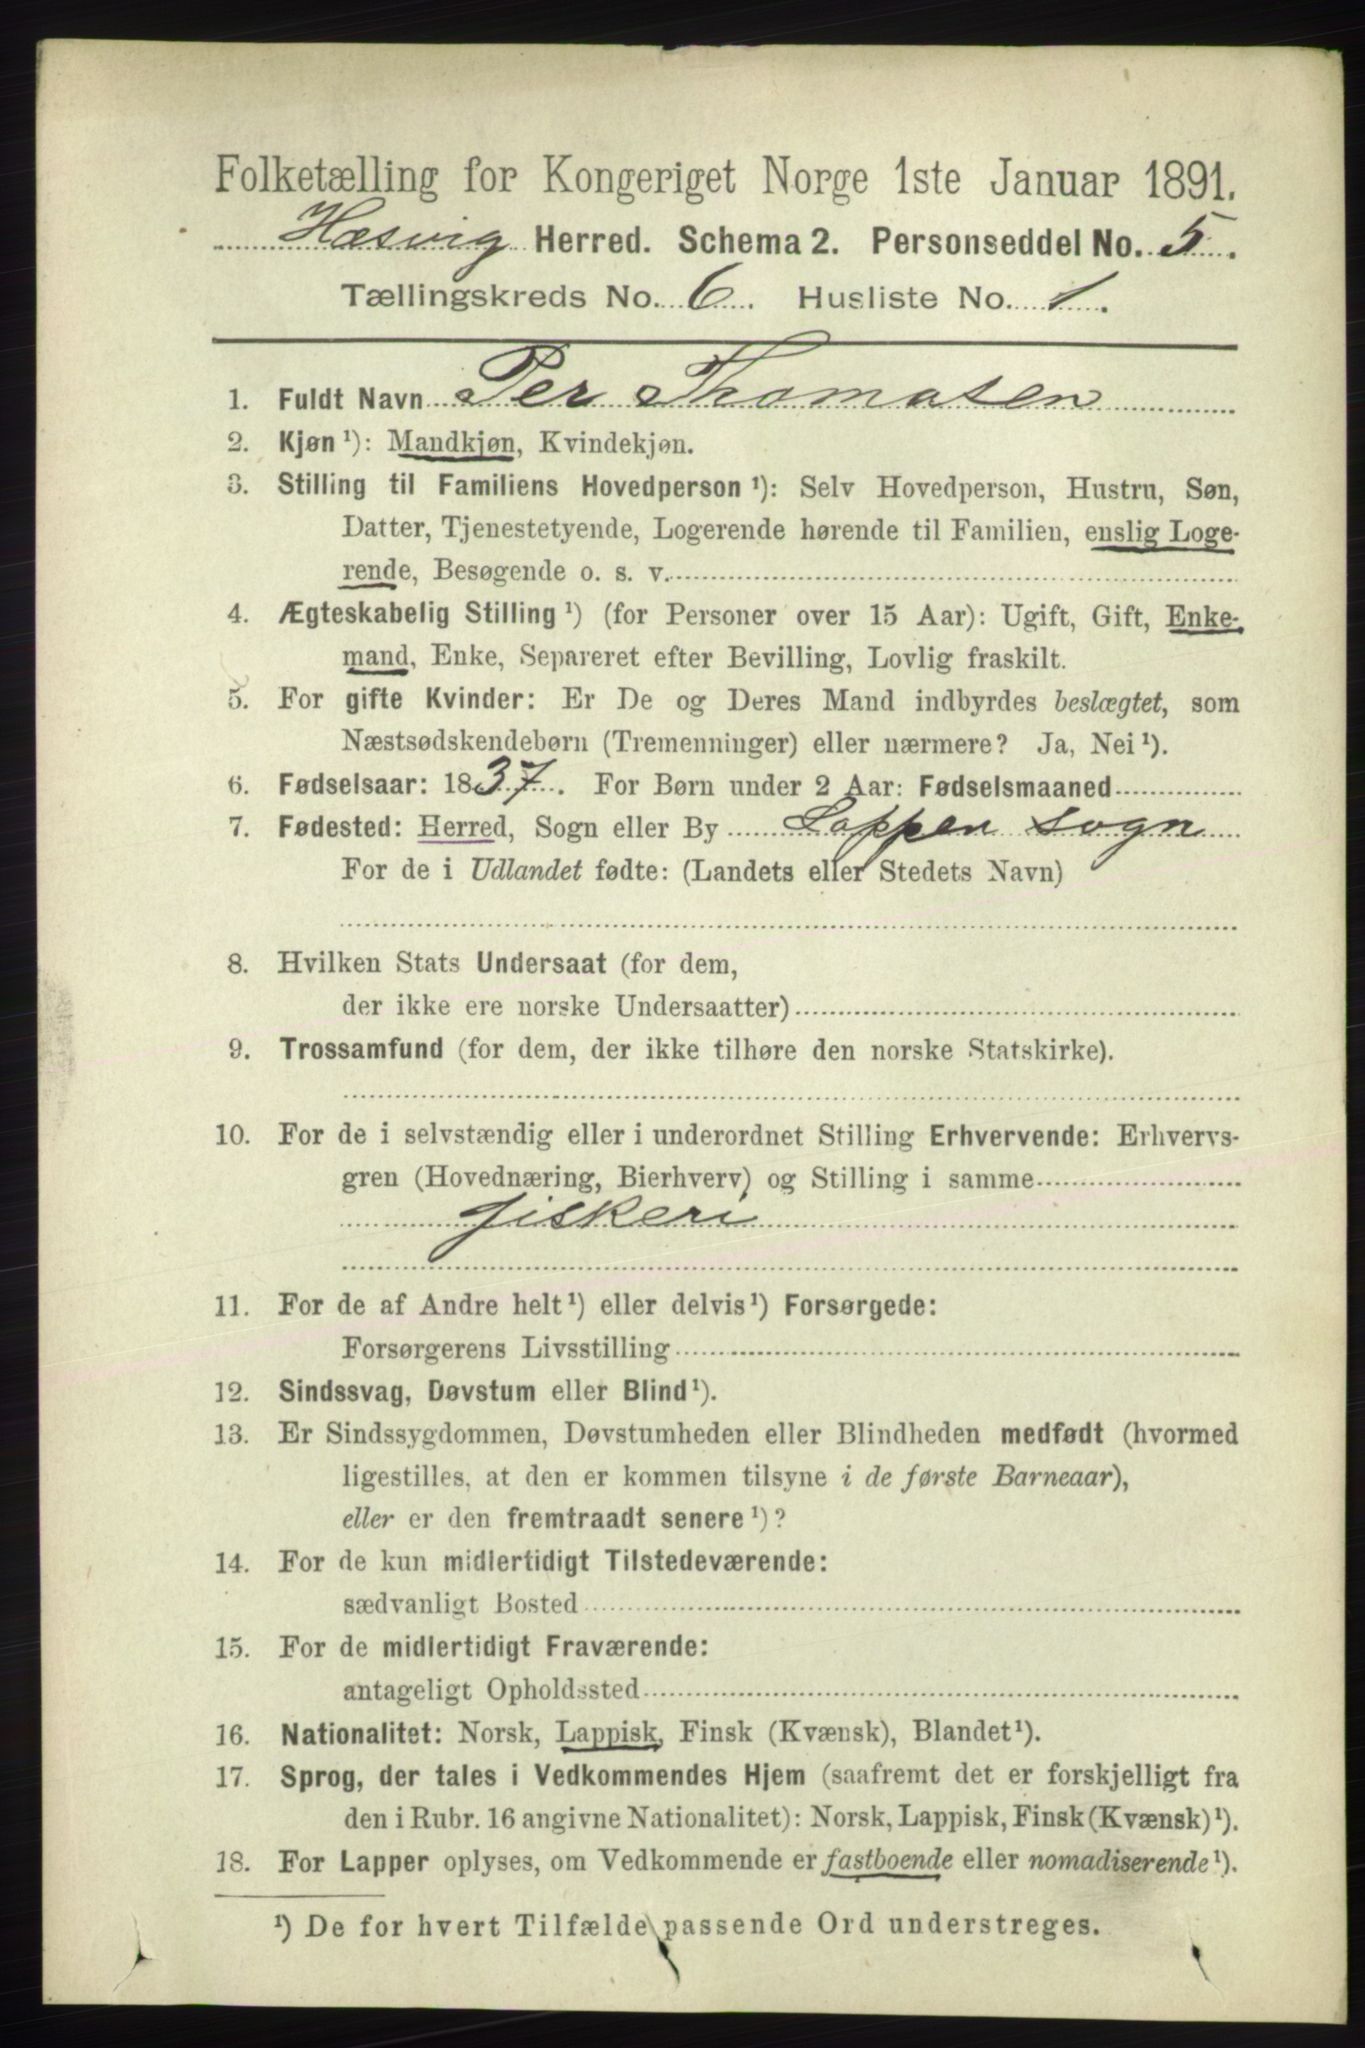 Folketælling for Kongeriget Norge 1ste Januar 1891.
Hasvig Herred. Schema 2. Personseddel No. 5.
Tællingskreds No. 6. Husliste No. 1.
1. Fuldt Navn Per Thomasen
2. Kjøn ¹): Mandkjøn, Kvindekjøn.
3. Stilling til Familiens Hovedperson ¹): Selv Hovedperson, Hustru, Søn,
Datter, Tjenestetyende, Logerende hørende til Familien, enslig Loge-
rende, Besøgende o. s. v.
4. Ægteskabelig Stilling ¹) (for Personer over 15 Aar): Ugift, Gift, Enke-
mand, Enke, Separeret efter Bevilling, Lovlig fraskilt.
5. For gifte Kvinder: Er De og Deres Mand indbyrdes beslægtet, som
Næstsødskendebørn (Tremenninger) eller nærmere? Ja, Nei ¹).
6. Fødselsaar: 1837. For Børn under 2 Aar: Fødselsmaaned
7. Fødested: Herred, Sogn eller By Loppen sogn
For de i Udlandet fødte: (Landets eller Stedets Navn)
8. Hvilken Stats Undersaat (for dem,
der ikke ere norske Undersaatter)
9. Trossamfund (for dem, der ikke tilhøre den norske Statskirke).
10. For de i selvstændig eller i underordnet Stilling Erhvervende: Erhvervs-
gren (Hovednæring, Bierhverv) og Stilling i samme
fiskeri
11. For de af Andre helt ¹) eller delvis ¹) Forsørgede:
Forsørgerens Livsstilling
12. Sindssvag, Døvstum eller Blind ¹).
13. Er Sindssygdommen, Døvstumheden eller Blindheden medfødt (hvormed
ligestilles, at den er kommen tilsyne i de første Barneaar),
eller er den fremtraadt senere ¹)?
14. For de kun midlertidigt Tilstedeværende:
sædvanligt Bosted
15. For de midlertidigt Fraværende:
antageligt Opholdssted
16. Nationalitet: Norsk, Lappisk, Finsk (Kvænsk), Blandet ¹).
17. Sprog, der tales i Vedkommendes Hjem (saafremt det er forskjelligt fra
den i Rubr. 16 angivne Nationalitet): Norsk, Lappisk, Finsk (Kvænsk) ¹).
18. For Lapper oplyses, om Vedkommende er fastboende eller nomadiserende ¹).
¹) De for hvert Tilfælde passende Ord understreges.